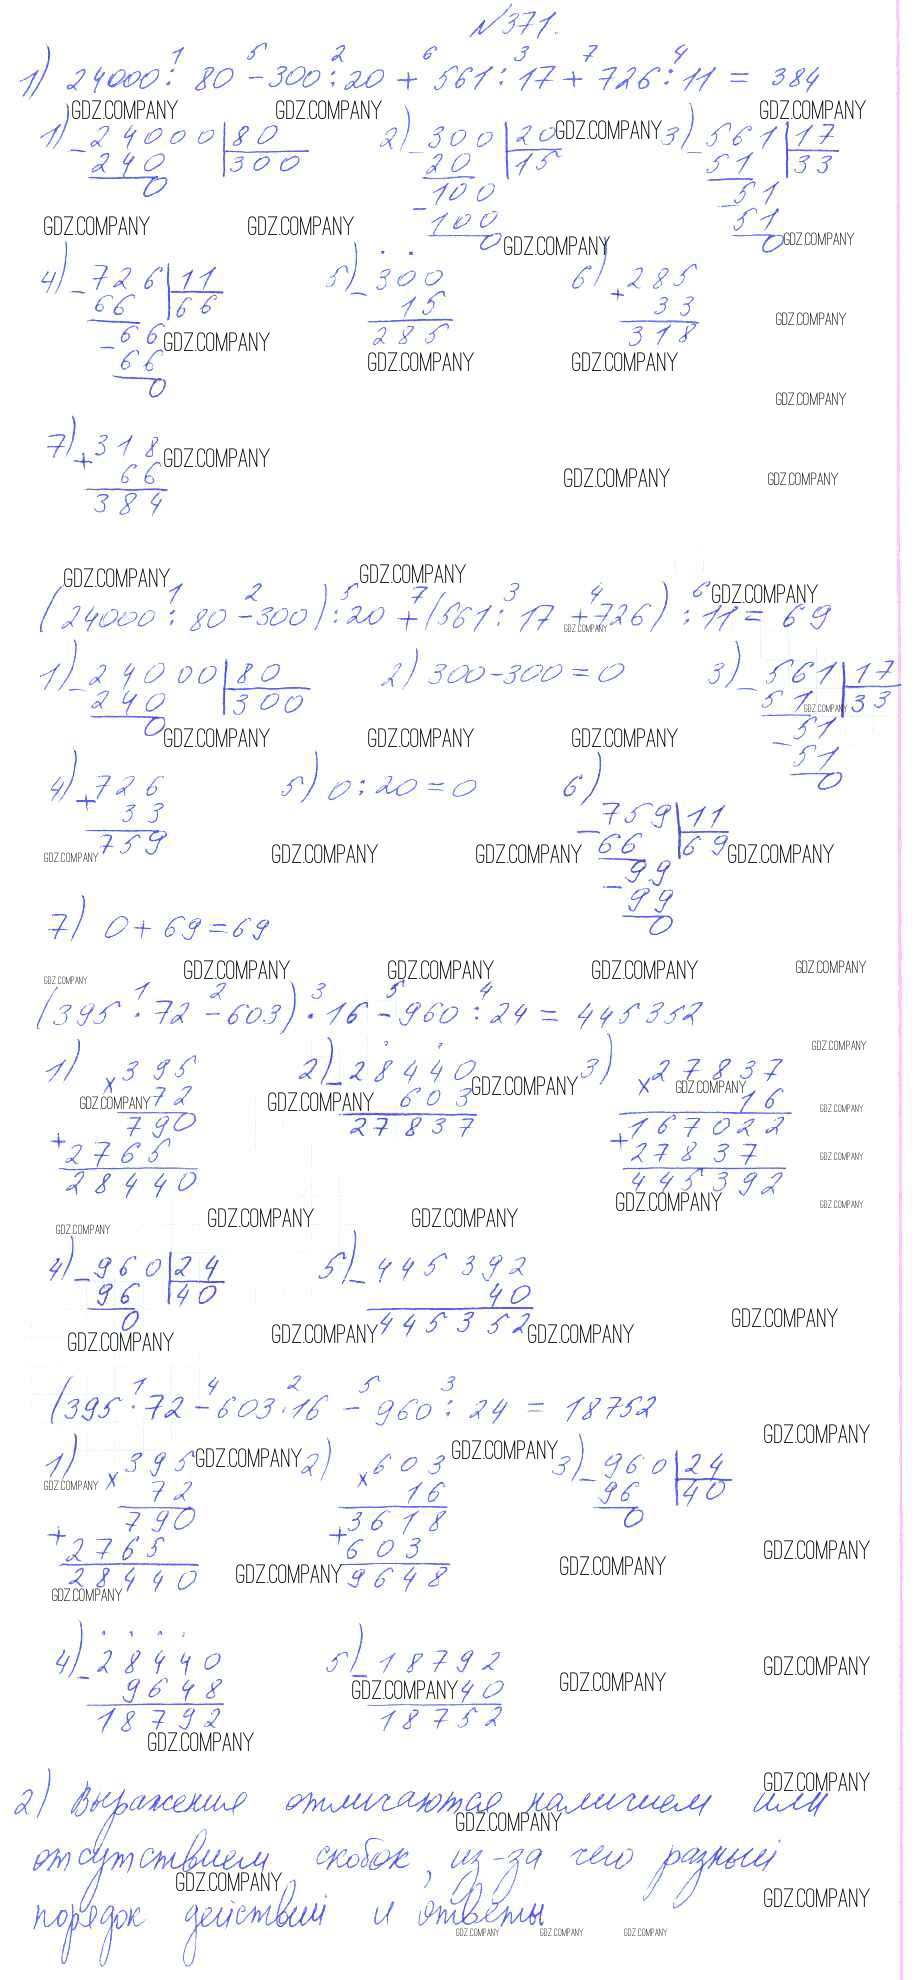 №371.
1) 24000 : 80 - 300 : 20 + 561 : 17 + 726 : 11 = 384
1 5 2 6 3 7 4
GDZ.COMPANY GDZ.COMPANY GDZ.COMPANY
1) - 24000 | 80 2) - 300 | 20 GDZ.COMPANY 3) - 561 | 17
240 | 300 20 | 15 51 | 33
0 - 100 - 51
100 51
0 0
GDZ.COMPANY GDZ.COMPANY GDZ.COMPANY GDZ.COMPANY
4) - 726 | 11 5) - 300 6) + 285
66 | 66 15 33
- 66 285 318
66
0
GDZ.COMPANY GDZ.COMPANY GDZ.COMPANY GDZ.COMPANY
GDZ.COMPANY
7) + 318 GDZ.COMPANY
66
384
GDZ.COMPANY GDZ.COMPANY
GDZ.COMPANY GDZ.COMPANY GDZ.COMPANY
1 2 5 7 3 4 6
(24000 : 80 - 300) : 20 + (561 : 17 + 726) : 11 = 69
GDZ.COMPANY
1) - 24000 | 80 2) 300 - 300 = 0 3) - 561 | 17
240 | 300 51 | 33
0 - 51
51
0
GDZ.COMPANY GDZ.COMPANY GDZ.COMPANY GDZ.COMPANY
4) + 726 5) 0 : 20 = 0 6) - 759 | 11
33 66 | 69
759 - 99
99
0
GDZ.COMPANY GDZ.COMPANY GDZ.COMPANY GDZ.COMPANY
7) 0 + 69 = 69
GDZ.COMPANY GDZ.COMPANY GDZ.COMPANY GDZ.COMPANY GDZ.COMPANY
1 2 3 5 4
(395 · 72 - 603) · 16 - 960 : 24 = 445352
GDZ.COMPANY
1) × 395 2) - 28440 3) × 27837
72 603 16
790 27837 167022
+ 2765 + 27837
28440 445392
GDZ.COMPANY GDZ.COMPANY GDZ.COMPANY GDZ.COMPANY GDZ.COMPANY
GDZ.COMPANY GDZ.COMPANY GDZ.COMPANY
GDZ.COMPANY GDZ.COMPANY GDZ.COMPANY
4) - 960 | 24 5) - 445392
96 | 40 40
0 445352
GDZ.COMPANY GDZ.COMPANY GDZ.COMPANY GDZ.COMPANY
1 4 2 5 3
(395 · 72 - 603 · 16 - 960 : 24 = 18752
GDZ.COMPANY
1) × 395 GDZ.COMPANY 2) × 603 GDZ.COMPANY 3) - 960 | 24
72 16 96 | 40
790 3618 0
+ 2765 + 603
28440 9648
GDZ.COMPANY GDZ.COMPANY GDZ.COMPANY GDZ.COMPANY
GDZ.COMPANY
4) - 28440 5) - 18792
9648 40
18792 18752
GDZ.COMPANY GDZ.COMPANY GDZ.COMPANY
GDZ.COMPANY
GDZ.COMPANY
2) Выражения отличаются наличием или
GDZ.COMPANY
отсутствием скобок, из-за чего разный
GDZ.COMPANY GDZ.COMPANY
порядок действий и ответы
GDZ.COMPANY GDZ.COMPANY GDZ.COMPANY